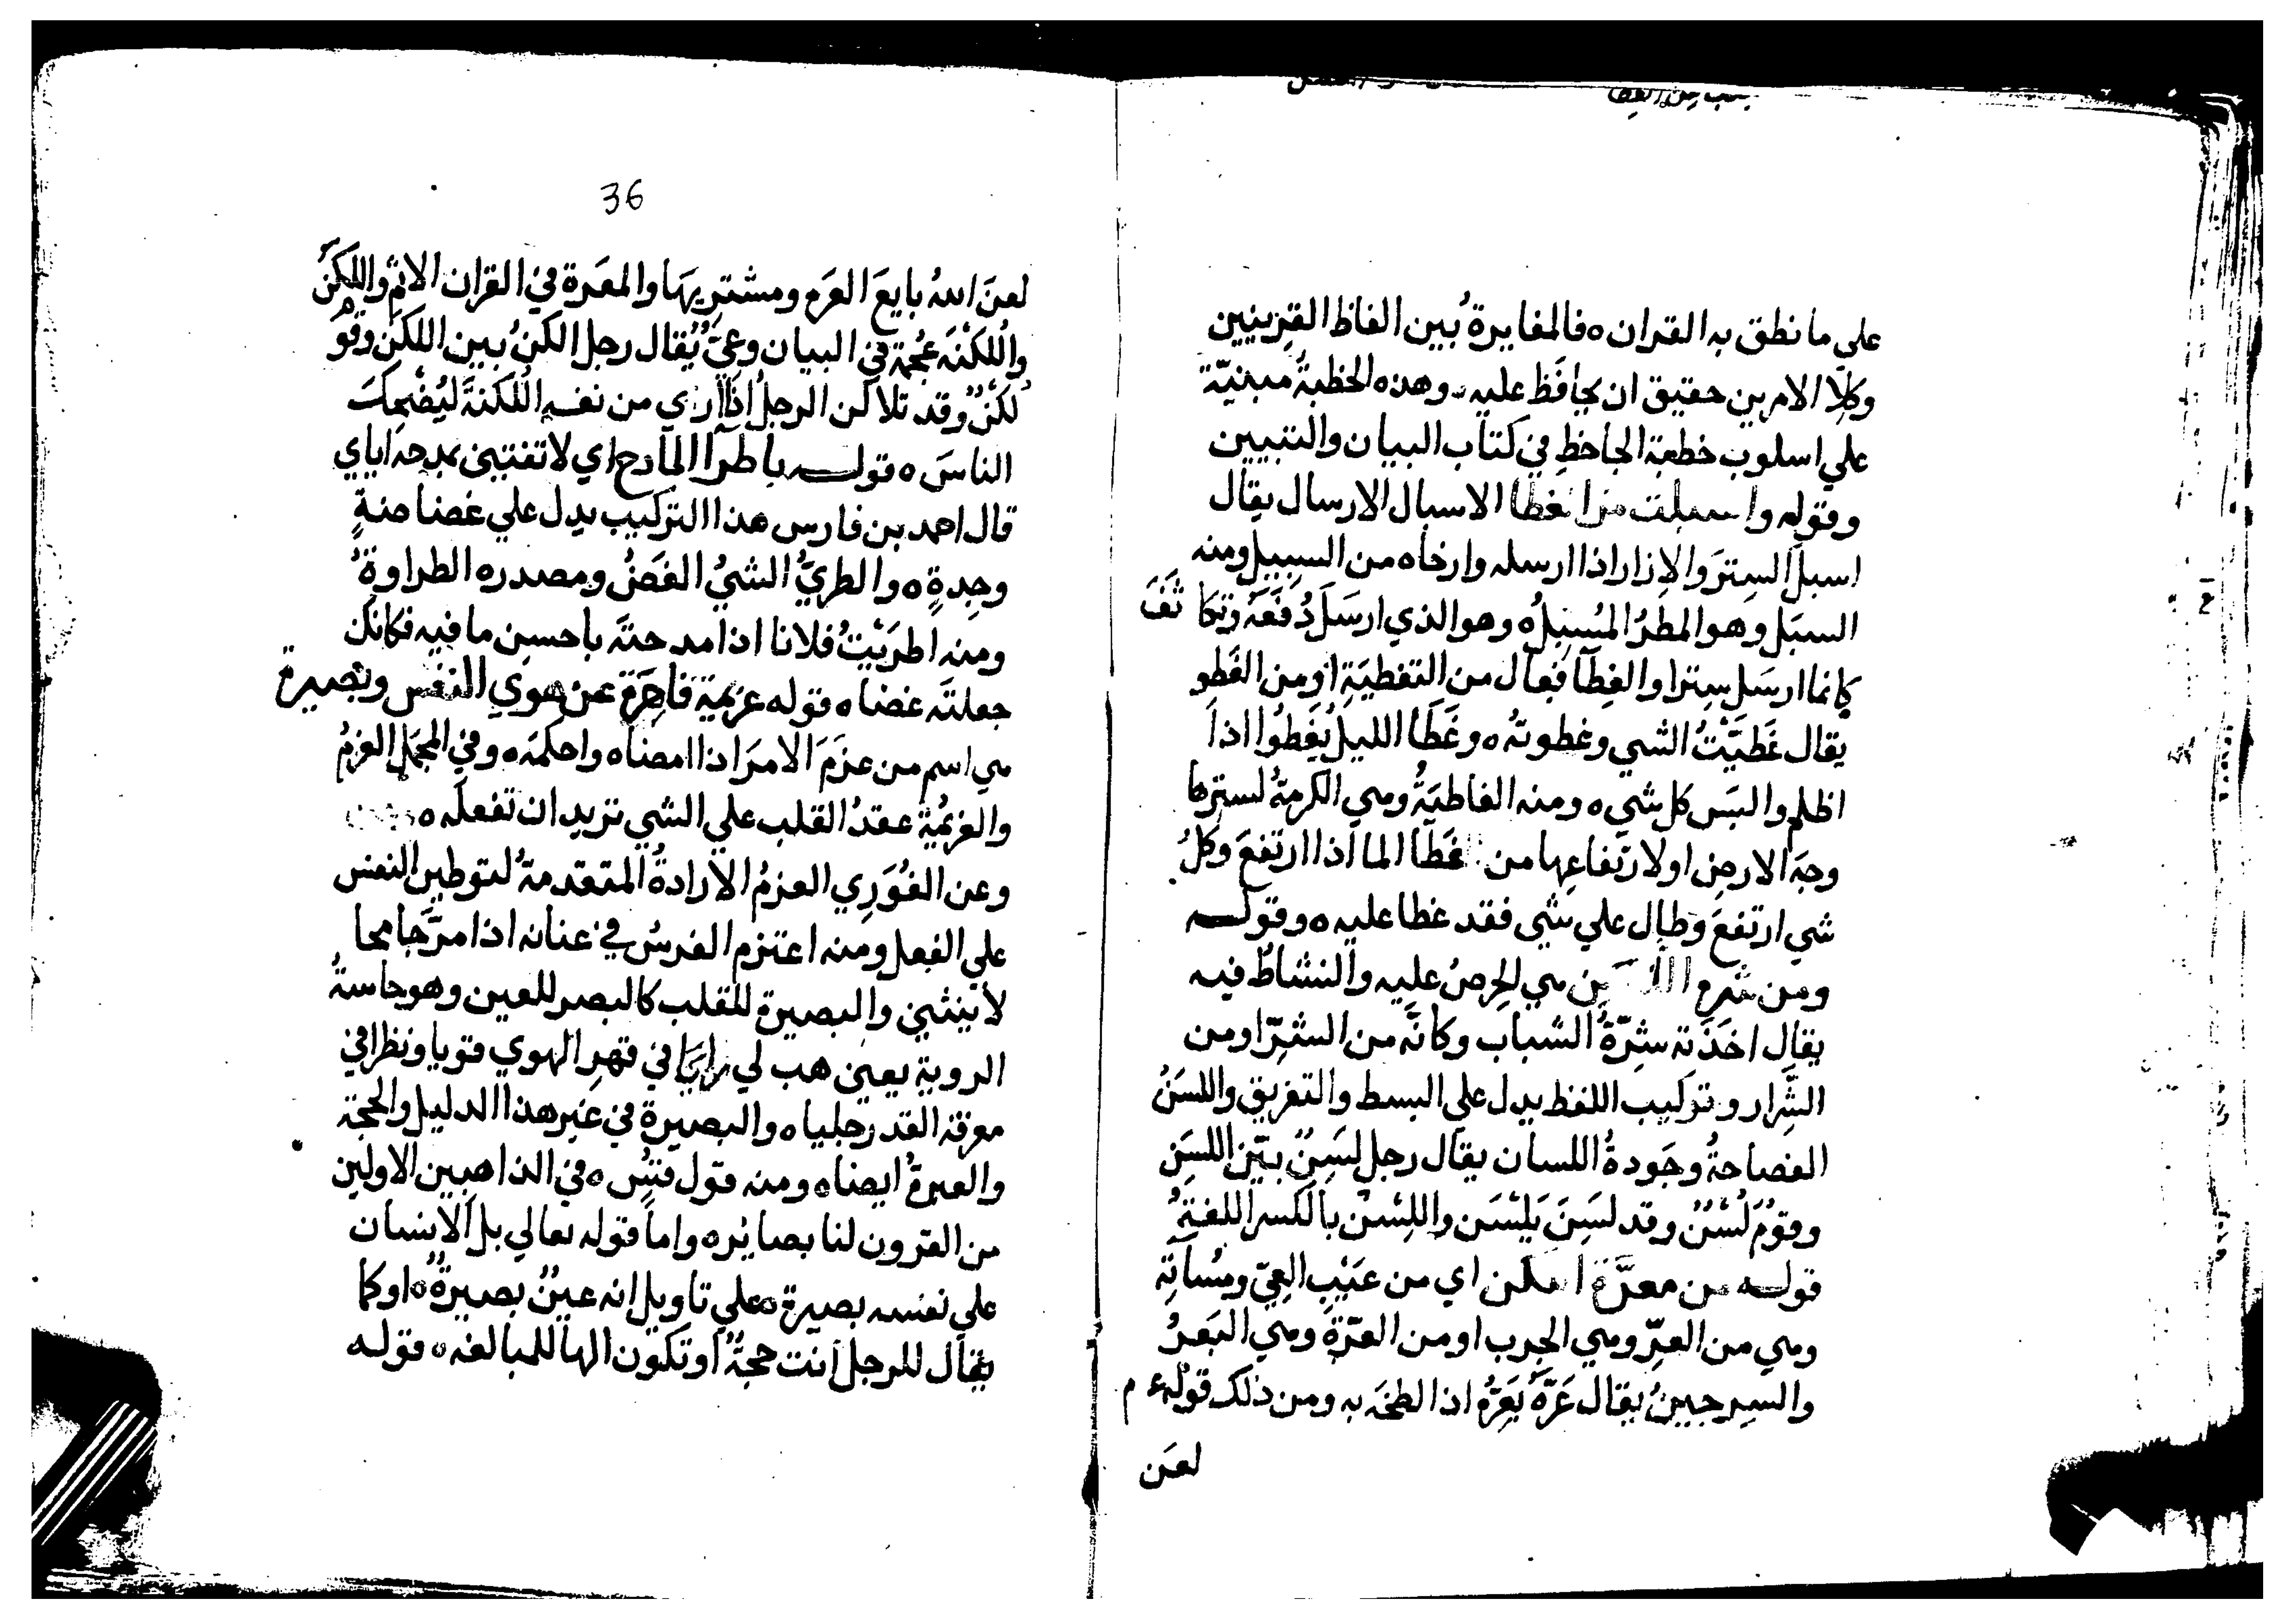 علي ما نطق به القران ه فالمغايرة بين الفاظ القرينين
وكلا الامرين حقيق ان يحافظ عليه وهذه الخطبة مبنيّة
علي اسلوب خطبة الجاحظ في كتاب البيان والتبيين
وقوله واسبلت من الغطا الاسبال الارسال يقال
اسبل الستر والازار اذا ارسله وارخاه من السبيل ومنه
السبل وهو المطر المسبل ه وهو الذي ارسل دفعه وتكاثف
كانما ارسل سترا والغطا فعال من التغطية او من الغطو
يقال غطيت الشي وغطوته ه وغطا الليل يغطوا اذا
اظلم والبس كل شي ه ومنه الغاطية وهي الكرمة لسترها
وجه الارض او لارتفاعها من غطا الما اذا ارتفع وكل
شي ارتفع وطال علي شي فقد غطا عليه ه وقوله
ومن شره هي الحرص عليه والنشاط فيه
يقال اخذته شرّة الشباب وكانّه من الشرّ او من
الشرار وتركيب اللفظ يدل علي البسط والتفريق واللسن
الفصاحة وجودة اللسان يقال رجل لسن بيّن اللسن
وقوم لسن وقد لسن يلسن واللسن بالكسر اللغة
قوله من معرّة اللكن اي من عيب العيّ ومساته
وهي من العرّ وهي الجرب او من العرّة وهي البعر
والسرجين يقال عرّه يعرّه اذا لطخه به ومن ذلك قوله ع م
لعن
36
لعن الله بايع العرم ومشتريها والمعرة في القران الاثم واللكن
واللكنه عجمة في البيان وعيّ يقال رجل الكن بين اللكن وقوم
لكن وقد تلاكن الرجل اذا اري من نفسه اللكنة ليضحك
الناس ه قوله باطرا المادح اي لا تفتني بمدحه اياي
قال احمد بن فارس هذا التركيب يدل علي غضاضة
وجدة ه والطريّ الشي الغض ومصدره الطراوة
ومنه اطريت فلانا اذا مدحته باحسن ما فيه فكانك
جعلته غضا ه قوله عزيمة قاهرة عن هوي النفس وبصيرة
هي اسم من عزم الامر اذا امضاه واحكمه ه وفي المجمل العزم
والعزيمة عقد القلب علي الشي تريد ان تفعله ه
وعن الغوري العزم الارادة المتقدمة لتوطين النفس
علي الفعل ومنه اعتزم الفرس في عنانه اذا مرّ جامحا
لا ينثني والبصيرة للقلب كالبصر للعين وهو حاسة
الروية يعني هب لي رايا في قهر الهوي قويا ونظرا في
معرفة القدر جليا ه والبصيرة في غير هذا الدليل والحجة
والعبرة ايضا ه ومنه قول قس ه في الذاهبين الاولين
من القرون لنا بصائر ه واما قوله تعالي بل الانسان
علي نفسه بصيرة ه علي تاويل انه عين بصيرة ه او كما
يقال للرجل انت حجة او تكون الها للمبالغه ه قوله